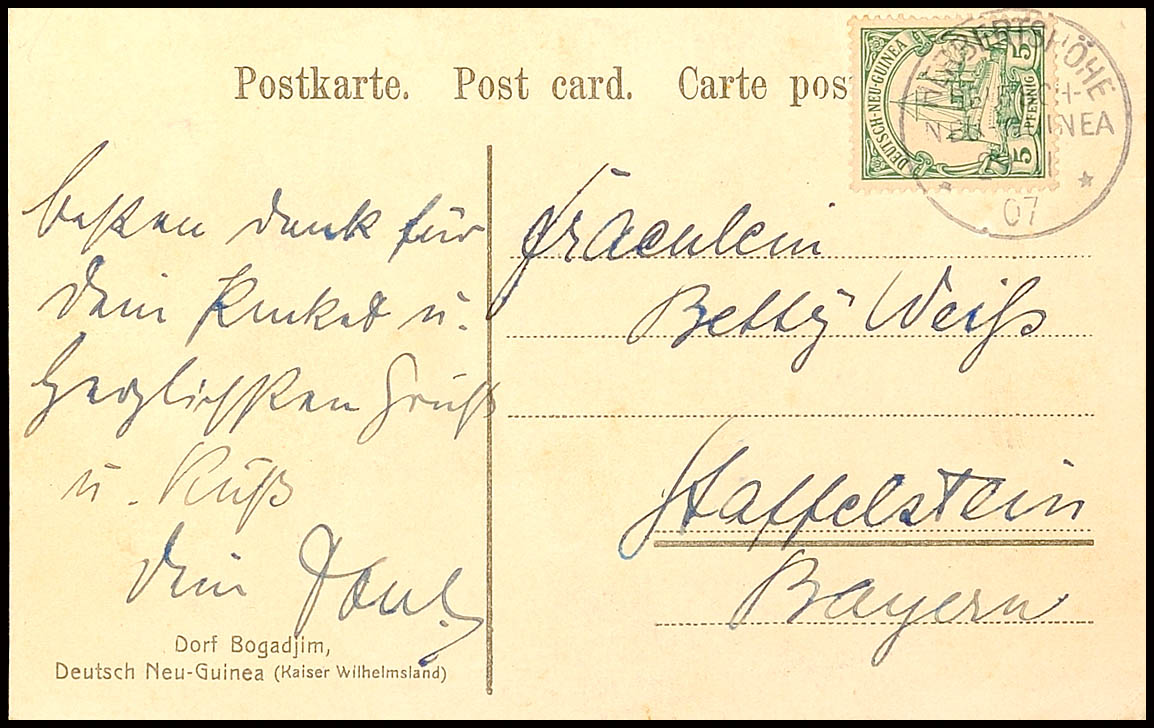 Postkarte. Post card. Carte pos
DEUTSCH-NEU-GUINEA
5 PFENNIG 5
HERBERTSHÖHE
DEUTSCH-
NEU-GUINEA
07
besten Dank für
Dein Paket u.
herzlichsten Gruß
u. Kuß
Dein Paul.
Fräulein
Betty Weiß
Staffelstein
Bayern
Dorf Bogadjim,
Deutsch Neu-Guinea (Kaiser Wilhelmsland)